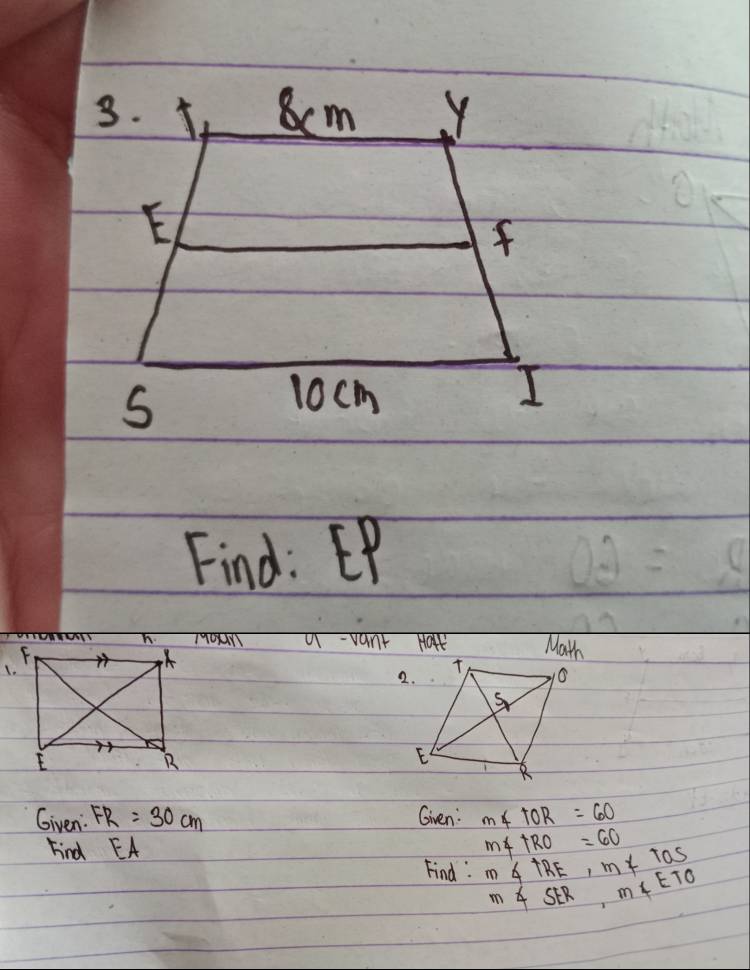 3. T 8cm Y
E F
S 10cm I
Find: EP
Math
1. F A
E R
Given: FR = 30 cm
Find EA
2. T O
S
E R
Given: m∡ TOR = 60
m∡ TRO = 60
Find: m∡ TRE, m∡ TOS
m∡ SER, m∡ ETO